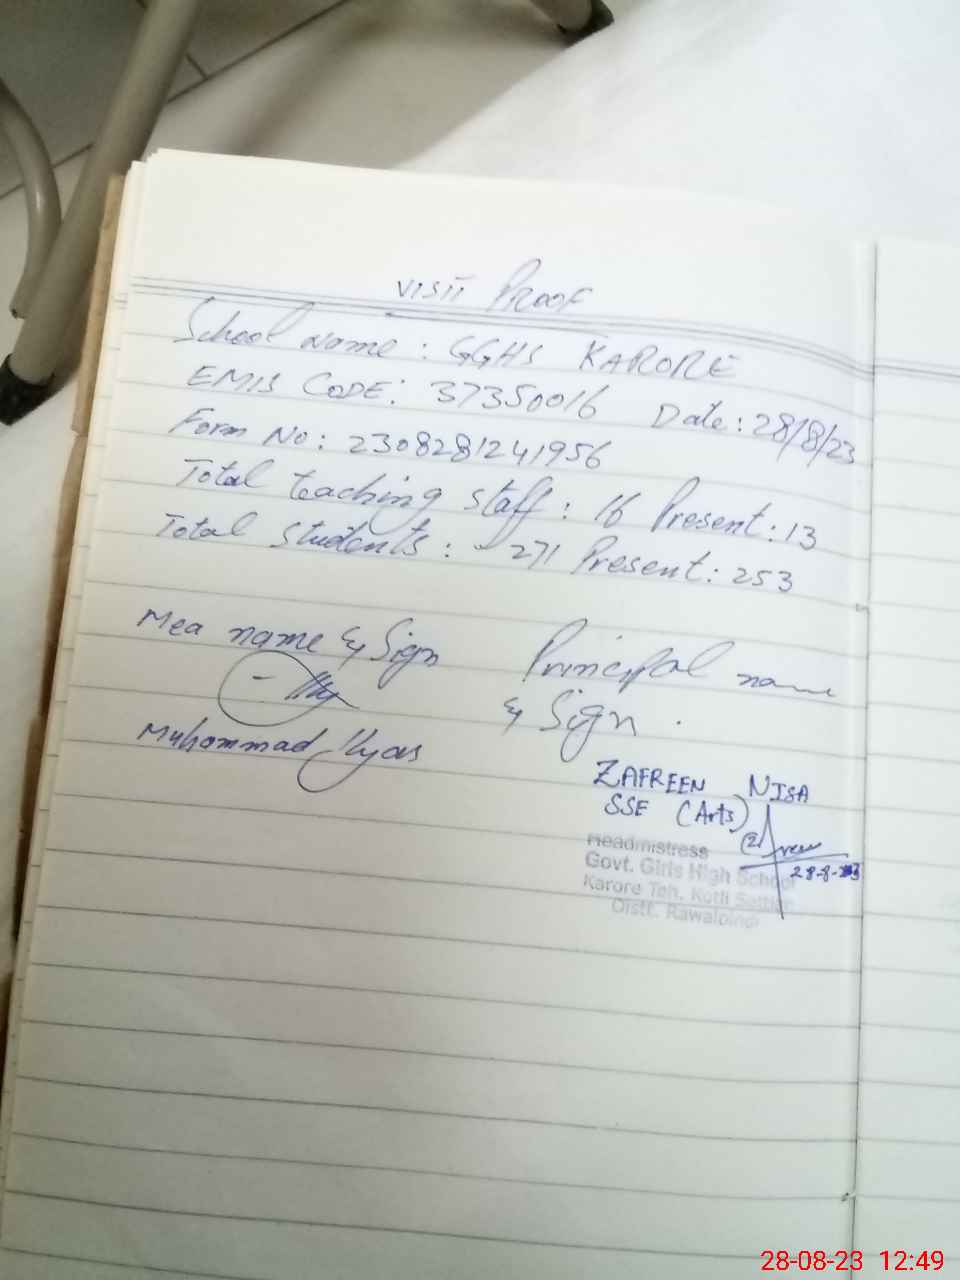 VISIT PROOF
School Name: GGHS KARORE
EMIS CODE: 37350016 Date: 28/8/23
Form No: 2308281241956
Total teaching staff: 16 Present: 13
Total Students: 271 Present: 253
Mea name & Sign Principal name
& Sign.
Muhammad Ilyas
ZAFREEN NISA
SSE (Arts)
28-8-23
Headmistress
Govt. Girls High School
Karore Teh. Kotli Sattian
Distt. Rawalpindi
28-08-23 12:49